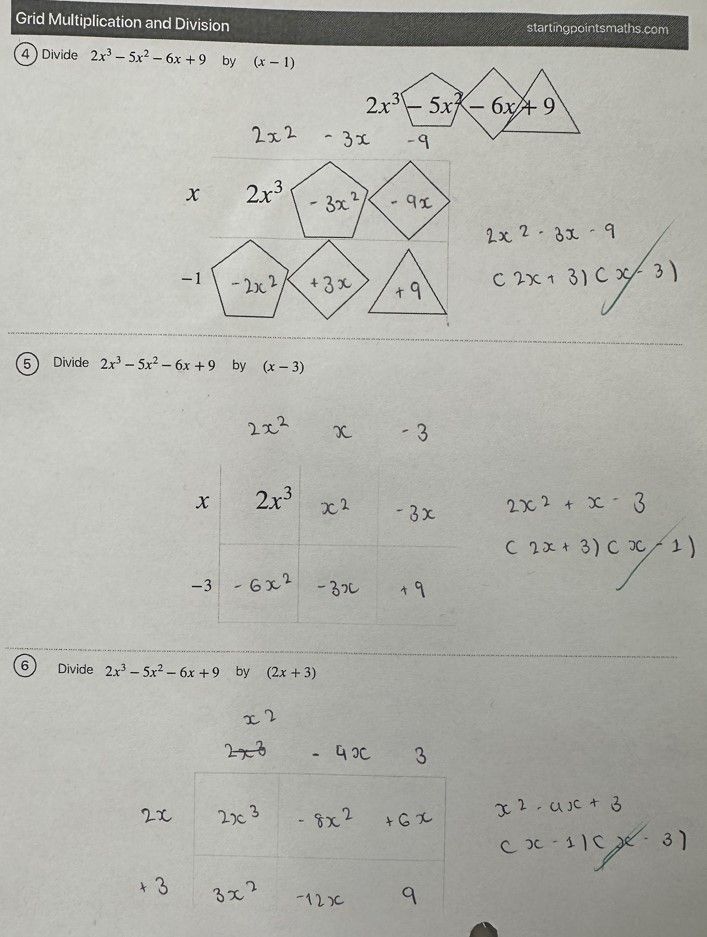 Grid Multiplication and Division
startingpointsmaths.com
4 Divide 2x³ − 5x² − 6x + 9 by (x − 1)
2x³ − 5x² − 6x + 9
2x² - 3x - 9
x 2x³ - 3x² - 9x
−1 - 2x² + 3x + 9
2x² - 3x - 9
(2x + 3)(x - 3)
5 Divide 2x³ − 5x² − 6x + 9 by (x − 3)
2x² x - 3
x 2x³ x² - 3x
−3 - 6x² - 3x + 9
2x² + x - 3
(2x + 3)(x - 1)
6 Divide 2x³ − 5x² − 6x + 9 by (2x + 3)
x²
2x3 - 4x 3
2x 2x³ - 8x² + 6x
+ 3 3x² -12x 9
x² - 4x + 3
(x - 1)(x - 3)